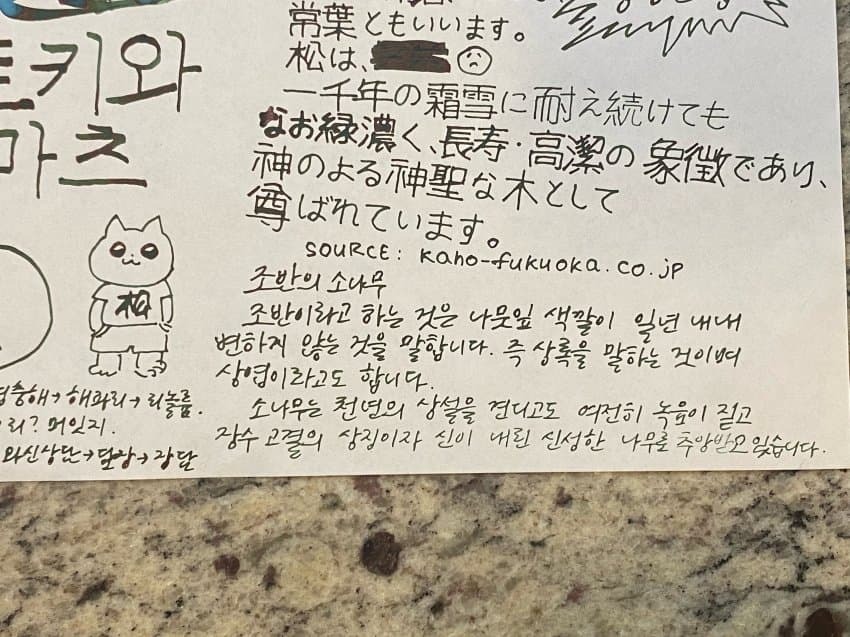 常葉ともいいます。
松は、
一千年の霜雪に耐え続けても
なお緑濃く、長寿・高潔の象徴であり、
神のよる神聖な木として
尊ばれています。
SOURCE: kaho-fukuoka.co.jp
키와
마츠
松
조반의 소나무
조반이라고 하는 것은 나뭇잎 색깔이 일년 내내
변하지 않는 것을 말합니다. 즉 상록을 말하는 것이며
상엽이라고도 합니다.
소나무는 천년의 상설을 견디고도 여전히 녹음이 짙고
장수 고결의 상징이자 신이 내린 신성한 나무로 추앙받고 있습니다.
해파리→
리? 머잇지.
와신상단→담장→장단